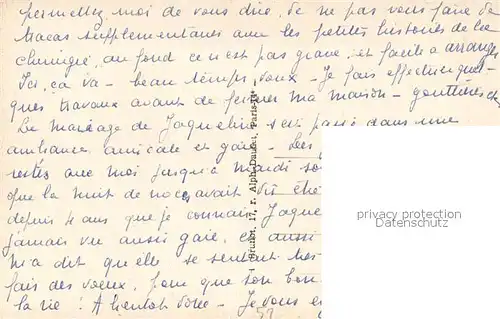 permettez moi de vous dire, de ne pas vous faire de
tracas supplémentaires avec les petites histoires de la
chirurgie, au fond ce n'est pas grave, et facile à arranger
Ici, ça va - beau temps, doux - Je fais effectuer quel-
ques travaux avant de fermer ma maison - gouttières, etc
Le mariage de Jaqueline s'est passé dans une
ambiance amicale et gaie - Les
restés avec moi jusqu'à mardi soir
que la nuit de noces avait été
depuis 4 ans que je connais Jaque
jamais vu aussi gaie, et aussi
m'a dit qu'elle se sentait très
fais des voeux, pour que son bon
la vie! A bientôt donc - Je vous
Bruner, 17, r. Alph. Daudet, Paris
privacy protection
Datenschutz